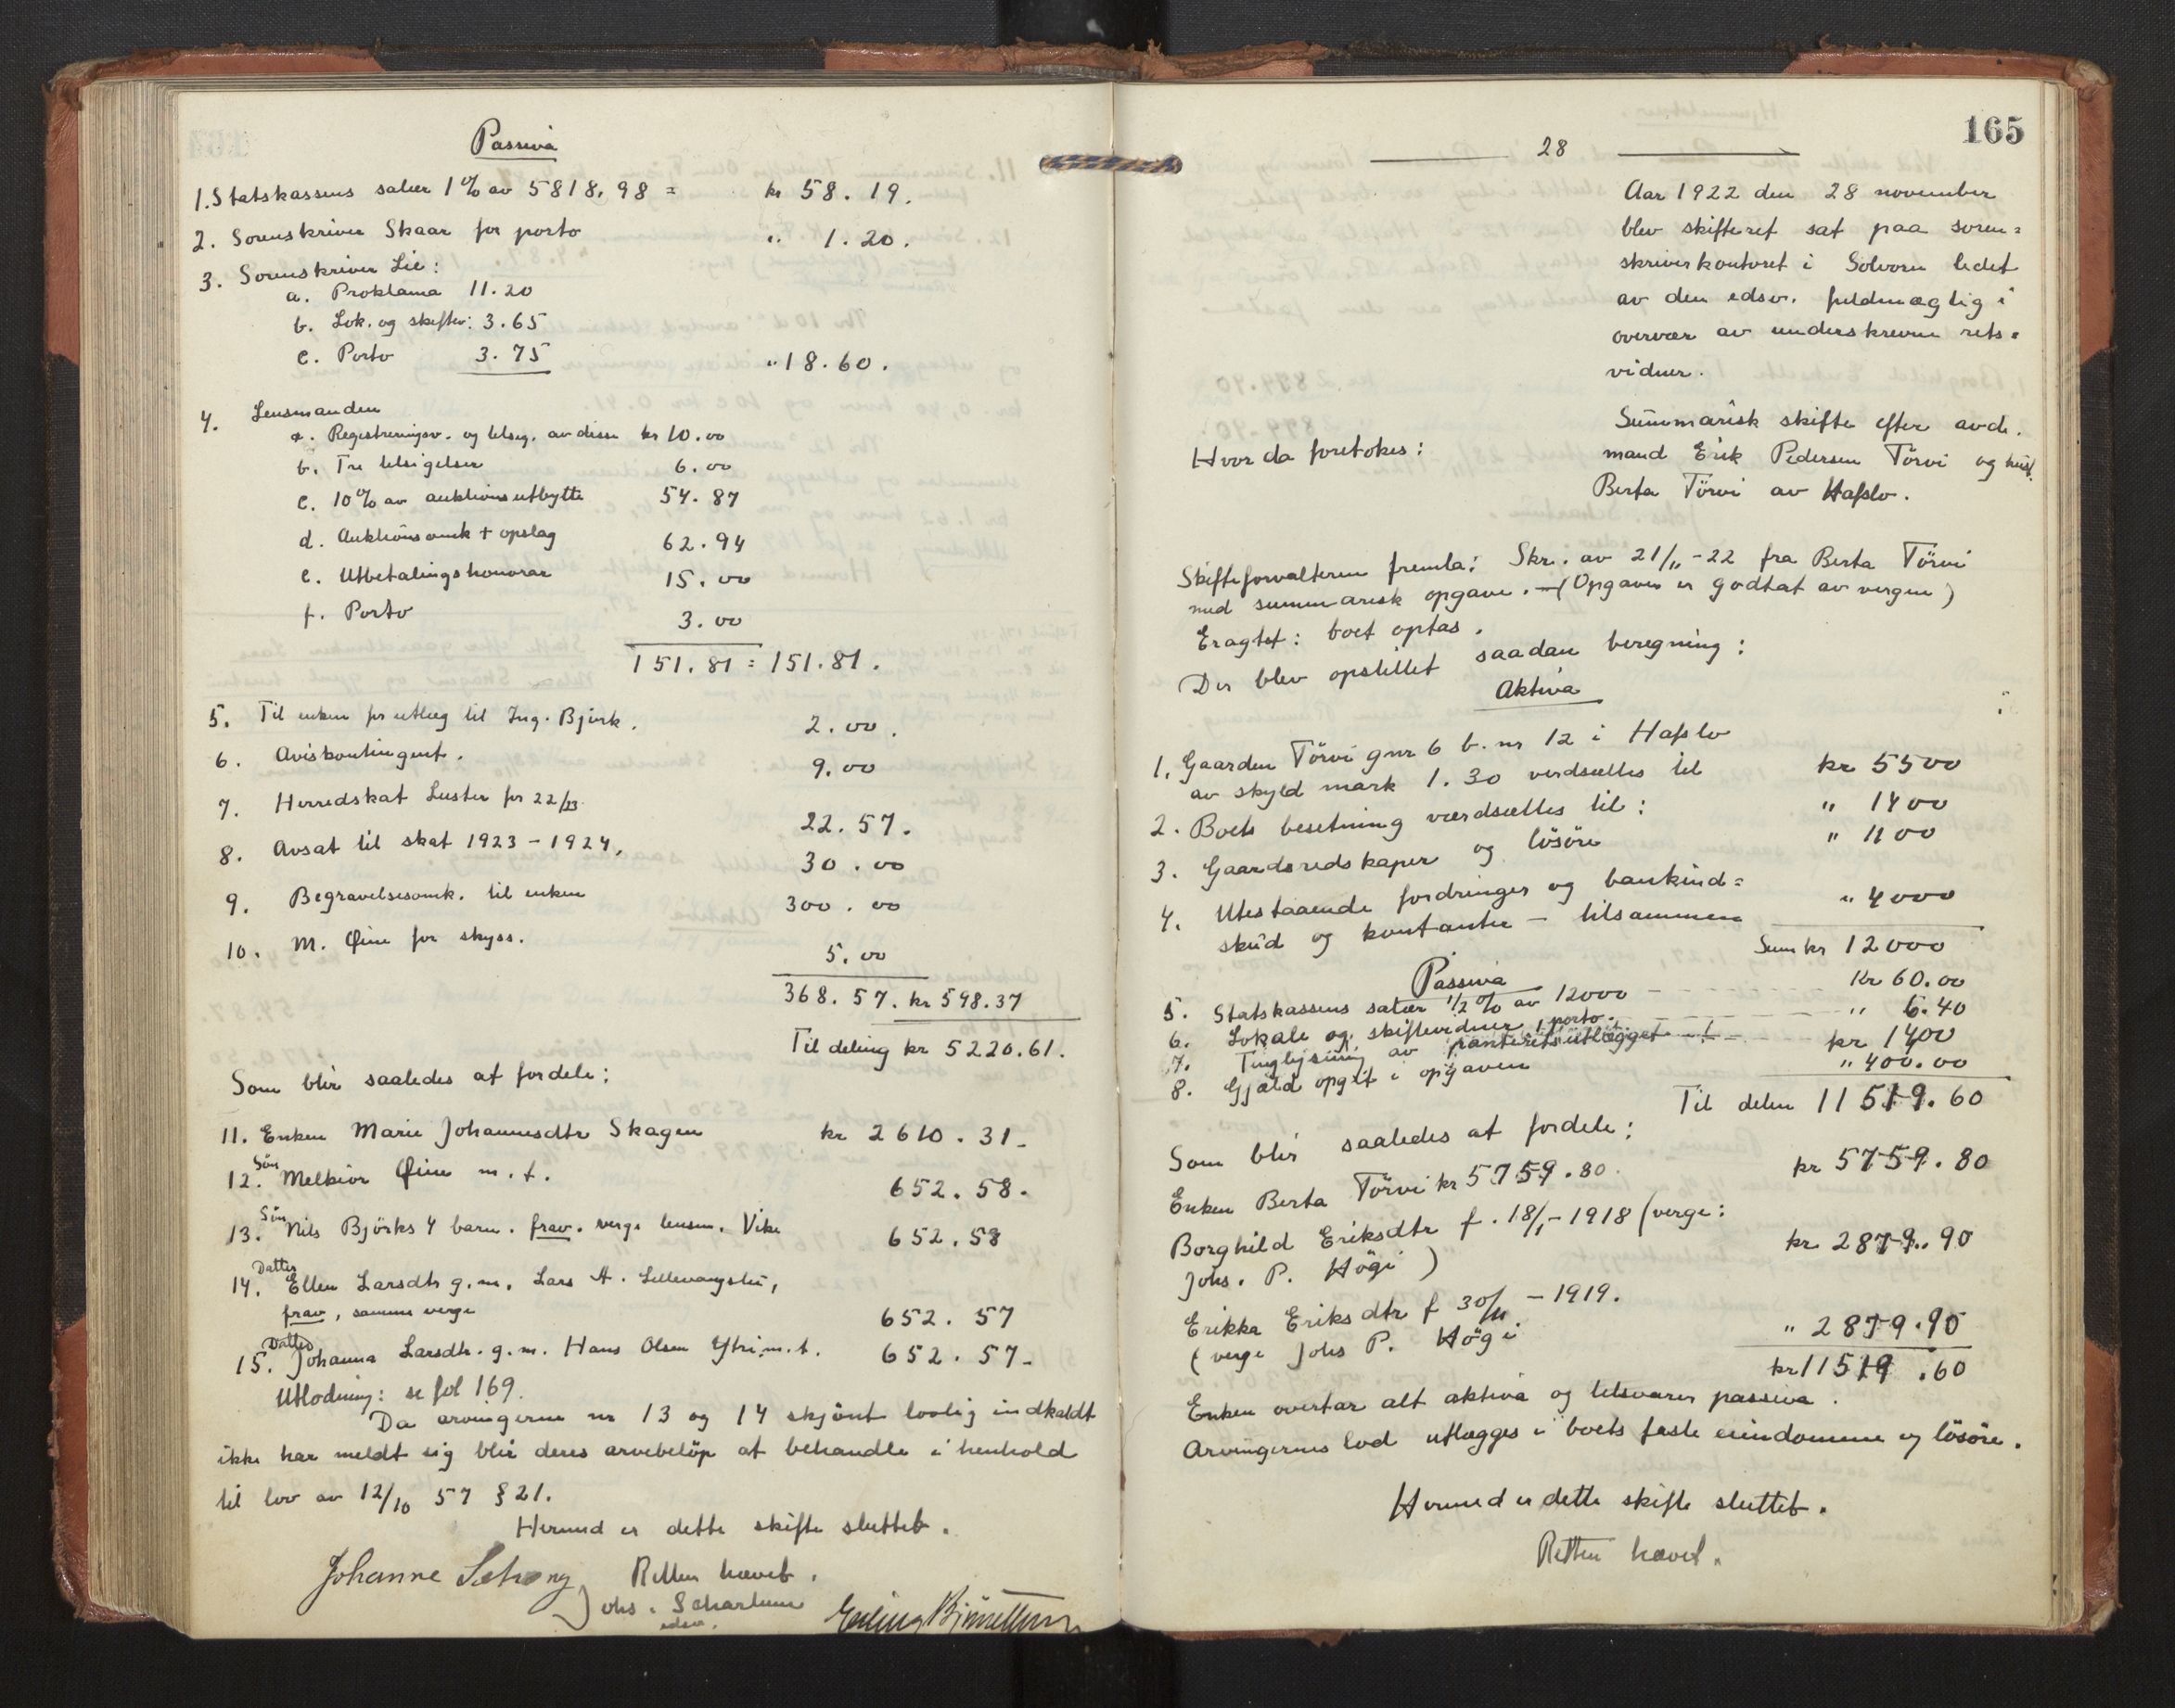 Passiva
1. Statskassens salær 1% av 5818,98 = kr 58.19.
2. Sorenskriver Skaar for porto " 1.20.
3. Sorenskriver Lie:
a. Proklama 11.20
b. Lok. og skiftev: 3.65
c. Porto 3.75 " 18.60.
4. Lensmanden
a. Registreringsv. og tilsig. av disse kr 10.00
b. Tre tilsigelser 6.00
c. 10% av auktionsutbytte 54.87
d. Auktionsomk + opslag 62.94
e. Utbetalingshonorar 15.00
f. Porto 3.00
151.81 = 151.81.
5. Til enken for utlæg til Ing. Bjørk. 2.00.
6. Aviskontingent. 9.00
7. Herredskat Luster for 22/23 22.57.
8. Avsat til skat 1923-1924. 30.00
9. Begravelsesomk. til enken 300.00
10. M. Øine for skyss. 5.00
368.57. kr 598.37
Til deling kr 5220.61.
Som blir saaledes at fordele:
11. Enken Marie Johannesdtr Skagen kr 2610.31-
12. Søn Melkior Øine m.t. 652.58.
13. Søn Nils Björks 4 barn. frav. verge lensm. Vike 652.58
14. Datter Ellen Larsdtr g.m. Lars A. Lillevangstu,
frav, samme verge 652.57
15. Datter Johanna Larsdtr. g.m. Hans Olsen Ytri m.t. 652.57-
Utlodning: se fol 169.
Da arvingerne nr 13 og 14 skjönt lovlig indkaldt
ikke har meldt sig blir deres arvebelöp at behandle i henhold
til lov av 12/10 57 § 21.
Hermed er dette skifte sluttet.
Retten hævet.
Johanne
Johs. Scharlum
edsv.
Erling
165
28
Aar 1922 den 28 november
blev skifteret sat paa soren=
skriverkontoret i Solvorn ledet
av den edsv. fuldmægtig i
overvær av underskrevne rets=
vidner.
Hvor da foretokes:
Summarisk skifte efter avd.
mand Erik Pedersen Törvi og hust.
Berta Törvi av Hafslo.
Skifteforvalteren fremla: Skr. av 21/11-22 fra Berta Törvi
med summarisk opgave. - (Opgaven er godtat av vergen)
Eragtet: boet optas.
Der blev opstillet saadan beregning:
Aktiva
1. Gaarden Törvi gnr 6 b.nr 12 i Hafslo
av skyld mark 1.30 verdsættes til kr 5500
2. Boets besetning værdsættes til: " 1400
3. Gaardsredskaper og lösöre " 1100
4. Utestaaende fordringer og bankind=
skud og kontanter - tilsammen " 4000
Sum kr 12000
Passiva
5. Statskassens salær 1/2% av 12000 - kr 60.00
6. Lokale og skiftevidner, porto. - " 6.40
7. Tinglysning av panteretsutlægget - kr 1400
8. Gjæld opgit i opgaven " 400.00
Til delen 11519.60
Som blir saaledes at fordele:
Enken Berta Törvi kr 5759.80 kr 5759.80
Borghild Eriksdtr f. 18/1-1918 (verge:
Johs. P. Högi) kr 2879.90
Erikka Eriksdtr f 30/11-1919.
(verge Johs P. Högi " 2879.90
kr 11519.60
Enken overtar alt aktiva og tilsvarer passiva.
Arvingernes lod utlægges i boets faste eiendomme og lösöre.
Hermed er dette skifte sluttet.
Retten hævet.